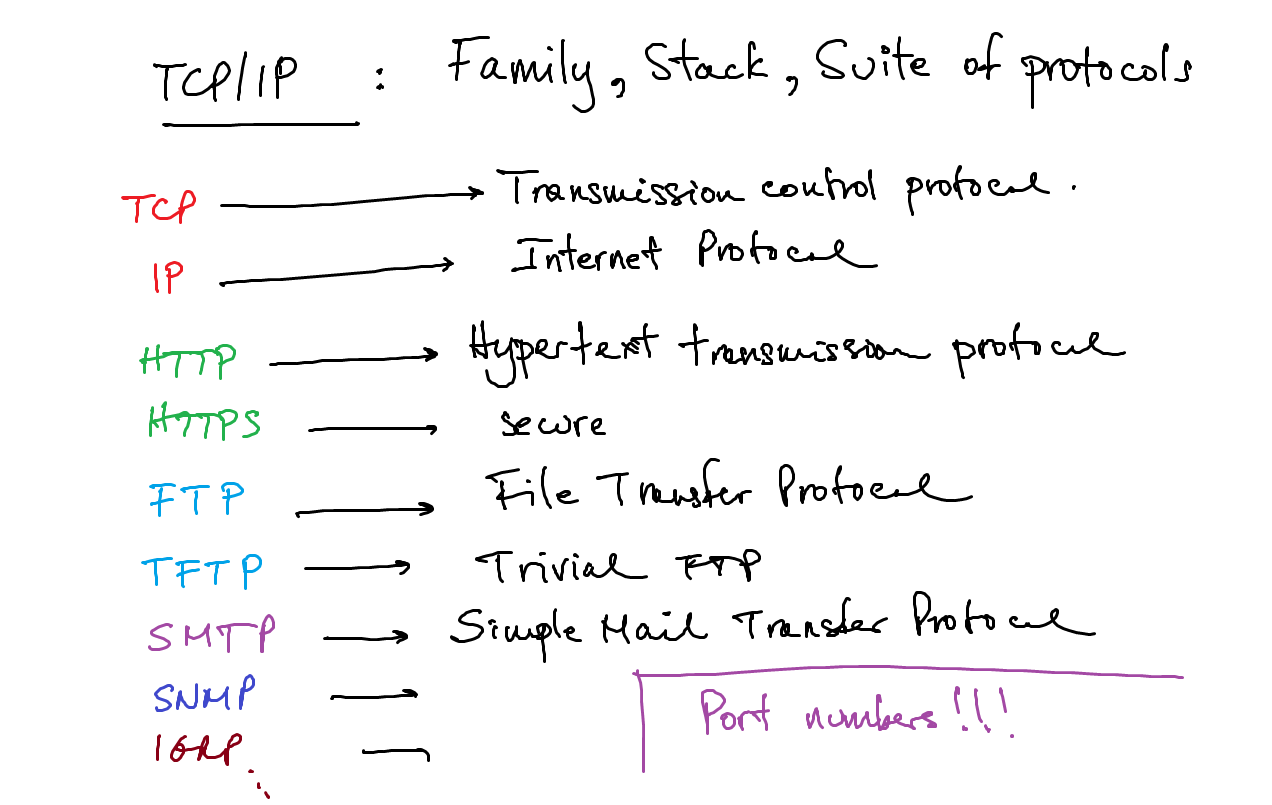 TCP/IP : Family, Stack, Suite of protocols
TCP → Transmission control protocol.
IP → Internet Protocol
HTTP → Hypertext transmission protocol
HTTPS → secure
FTP → File Transfer Protocol
TFTP → Trivial FTP
SMTP → Simple Mail Transfer Protocol
SNMP →
Port numbers!!!
IGRP